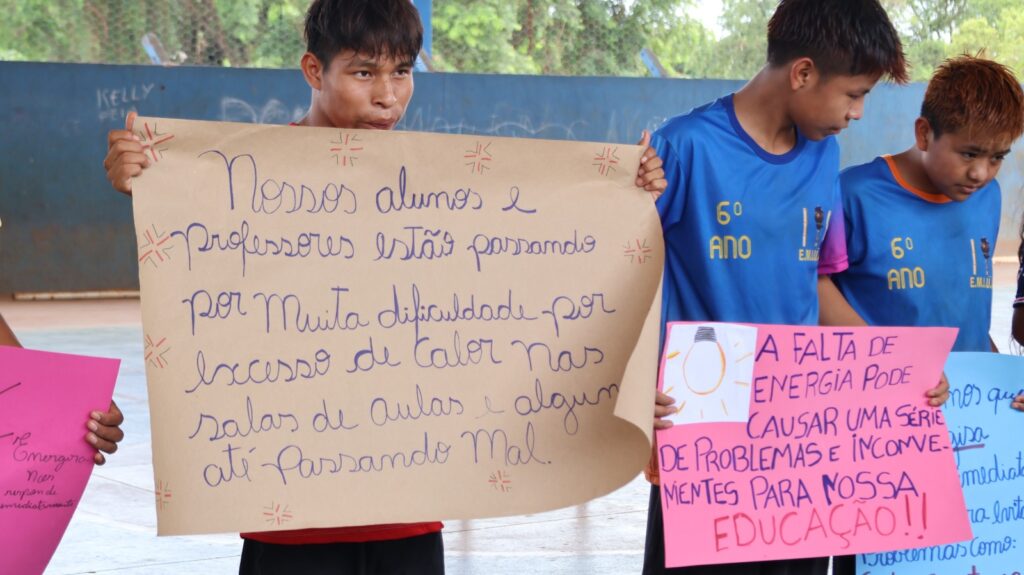 KELLY
Nossos alunos e
professores estão passando
por muita dificuldade por
excesso de calor nas
salas de aulas e algun
até passando mal.
6º
ANO
6º
ANO
A FALTA DE
ENERGIA PODE
CAUSAR UMA SÉRIE
DE PROBLEMAS E INCONVE-
NIENTES PARA NOSSA
EDUCAÇÃO!!
Energisa
Nos
responde
imediatamente
nos que
gisa
imediat
para evita
Problemas como: